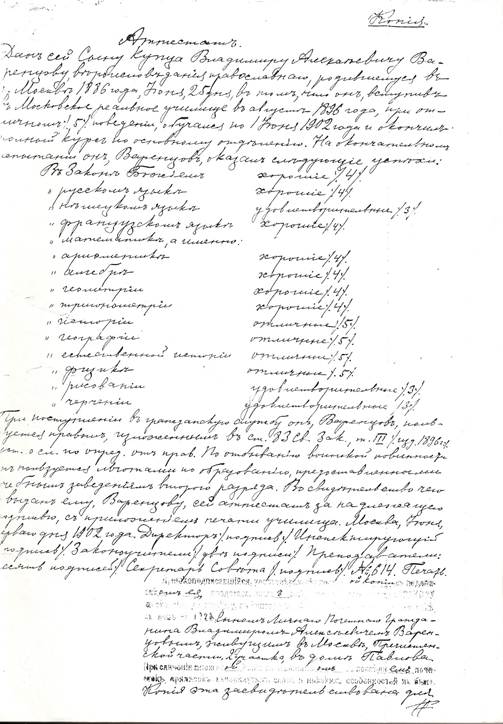 Копія.
Аттестатъ.
Данъ сей Сыну Купца Владимиру Алексѣевичу Ва-
ренцову, вѣроисповѣданія православнаго, родившемуся въ
г. Москвѣ 1886 года, Іюня, 25 дня, въ томъ, что онъ, вступивъ
въ Московское реальное училище въ августѣ 1896 года, при от-
личномъ /5/ поведеніи, обучался по 1 Іюня 1902 года и окончилъ
полный курсъ по основному отдѣленію. На окончательномъ
испытаніи онъ, Варенцовъ, оказалъ слѣдующіе успѣхи:
Въ Законѣ Божіемъ хорошіе /4/.
" русскомъ языкѣ хорошіе /4/.
" нѣмецкомъ языкѣ удовлетворительные /3/.
" французскомъ языкѣ хорошіе /4/.
" математикѣ, а именно:
" ариѳметикѣ хорошіе /4/.
" алгебрѣ хорошіе /4/.
" геометріи хорошіе /4/.
" тригонометріи хорошіе /4/.
" исторіи отличные /5/.
" географіи отличные /5/.
" естественной исторіи отличные /5/.
" физикѣ отличные /5/.
" рисованіи удовлетворительные /3/.
" черченіи удовлетворительные /3/.
При поступленіи въ гражданскую службу онъ, Варенцовъ, поль-
зуется правомъ, изложеннымъ въ ст. 33 Св. Зак., т. III /изд. 1896 г./
уст. о сл. по опред. отъ прав. По отбыванію воинской повинности
онъ пользуется льготами по образованію, предоставленными
учебнымъ заведеніямъ второго разряда. Въ свидѣтельство чего
и выданъ ему, Варенцову, сей аттестатъ за надлежащею
подписью, съ приложеніемъ печати училища. Москва, Іюня,
дня 1902 года. Директоръ /подпись/ Инспектирующій
/подпись/ Законоучители /двѣ подписи/ Преподаватели:
подписей/ Секретарь Совѣта /подпись/ № 614. Печать.
Личнаго Почетнаго Гражда-
нина Владимиромъ Алексѣевичемъ Варен-
цовымъ, живущимъ въ Москвѣ, Пречистен-
ской части, въ домѣ Павлова
Копія эта засвидѣтельствована для